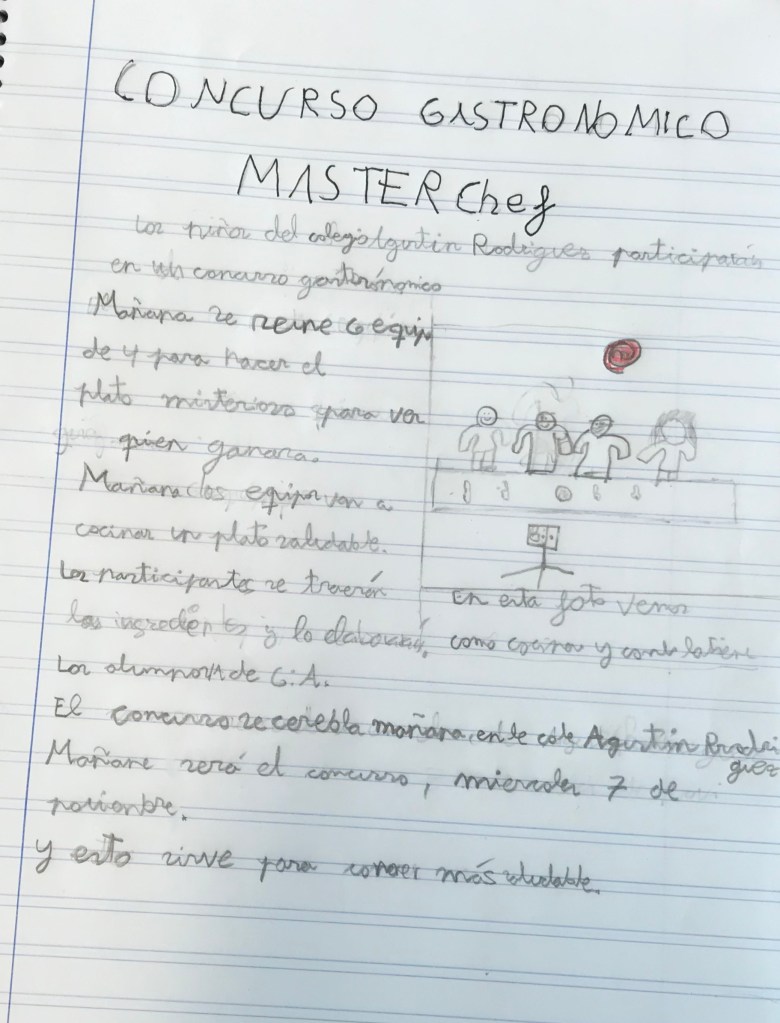 CONCURSO GASTRONOMICO
MASTER Chef
Los niños del colegio Agustin Rodriguez participarán
en un concurso gastronómico
Mañana se reine 6 equip
de 4 para hacer el
plato misterioso para ver
quien ganara.
Mañana los equipos van a
cocinar un plato saludable.
Los participantes se traerán
los ingredentes y lo elaborarás.
En esta foto vemos
como cocinar y
Los alumnos de 6.A.
El concurso se cerebla mañana en le cole Agustin Rrodri
guez
Mañane será el concurso, miercoles 7 de
noviembre.
y esto sirve para comer más saludable.